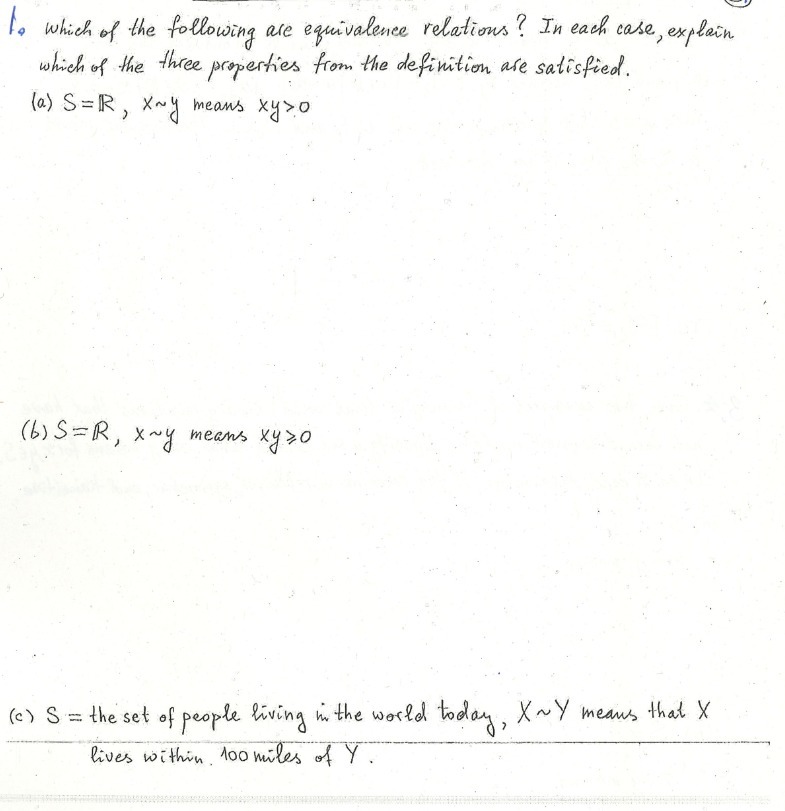 1. Which of the following are equivalence relations? In each case, explain
which of the three properties from the definition are satisfied.
(a) S=ℝ, x~y means xy>0
(b) S=ℝ, x~y means xy⩾0
(c) S = the set of people living in the world today, X~Y means that X
lives within 100 miles of Y.